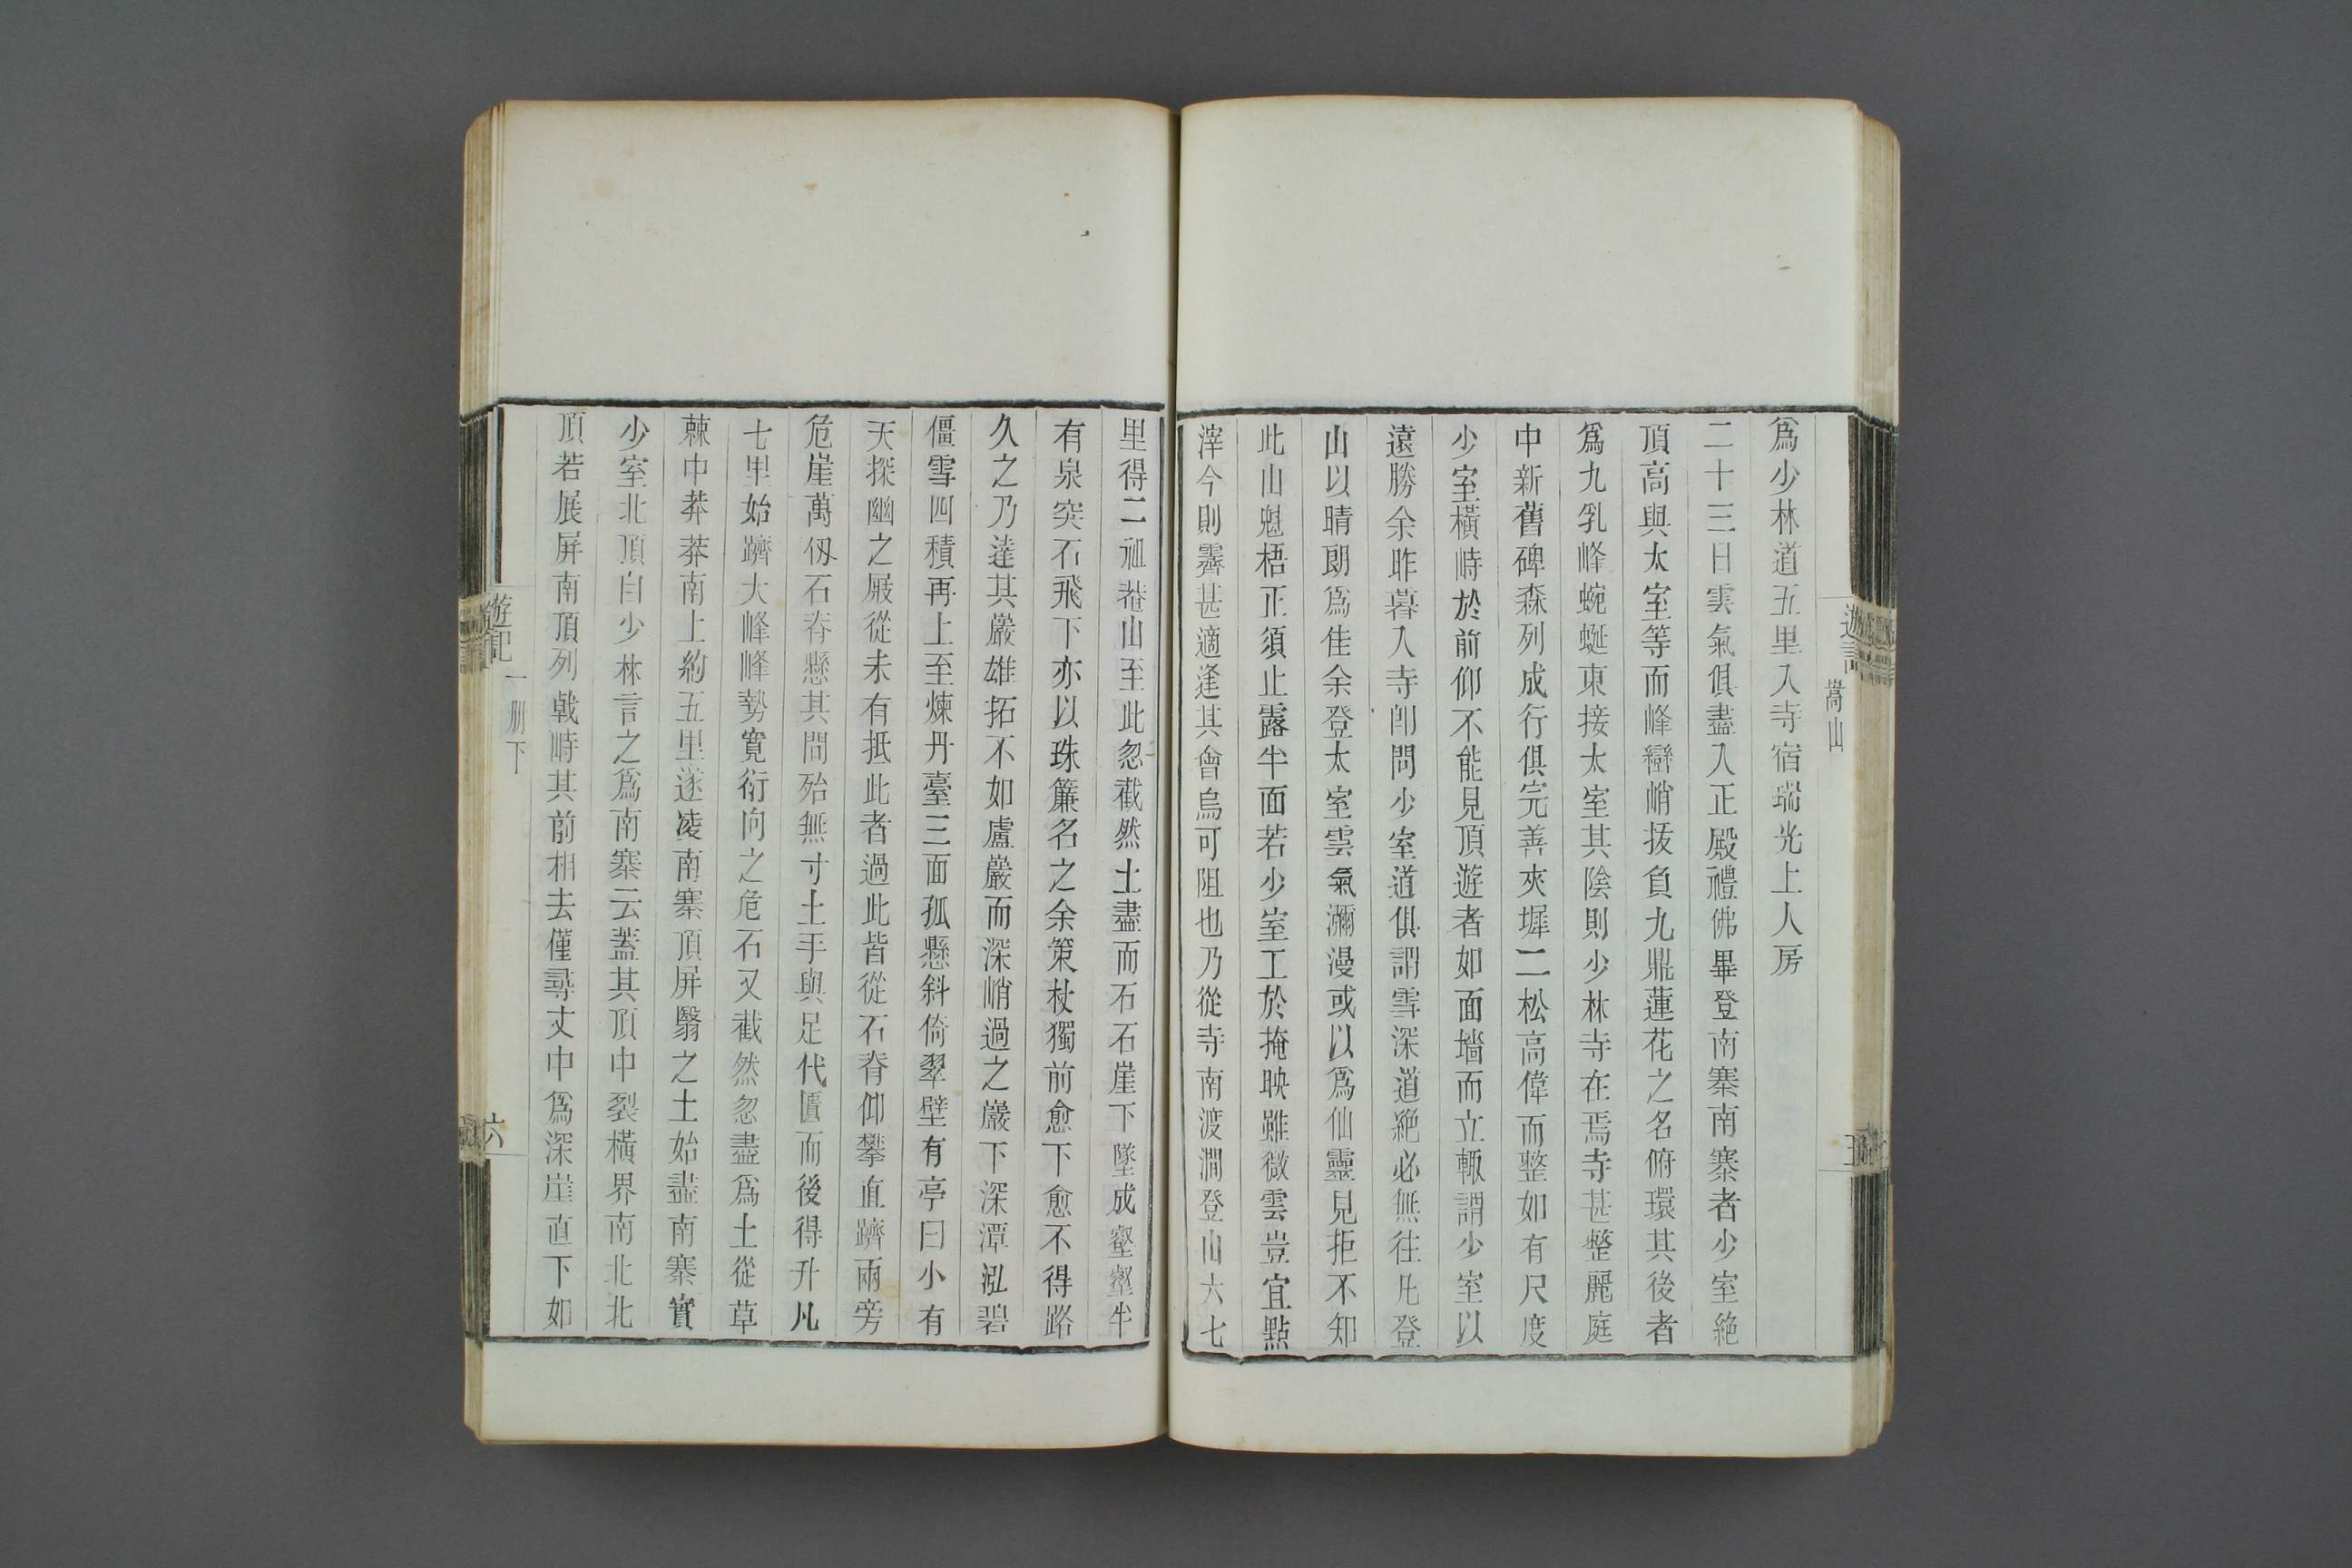 遊記
嵩山
爲少林道五里入寺宿瑞光上人房
二十三日雲氣俱盡入正殿禮佛畢登南寨南寨者少室絶
頂高與太室等而峰巒峭拔負九鼎蓮花之名俯環其後者
爲九乳峰蜿蜒東接太室其陰則少林寺在焉寺甚整麗庭
中新舊碑森列成行俱完善夾墀二松高偉而整如有尺度
少室橫峙於前仰不能見頂遊者如面墻而立輙謂少室以
遠勝余昨暮入寺卽問少室道俱謂雪深道絶必無往凡登
山以晴朗爲佳余登太室雲氣瀰漫或以爲仙靈見拒不知
此山魁梧正須止露半面若少室工於掩映雖微雲豈宜點
滓今則霽甚適逢其會烏可阻也乃從寺南渡澗登山六七
里得二祖菴山至此忽截然土盡而石石崖下墜成壑壑半
有泉突石飛下亦以珠簾名之余策杖獨前愈下愈不得路
久之乃達其巖雄拓不如盧巖而深峭過之巖下深潭泓碧
僵雪四積再上至煉丹臺三面孤懸斜倚翠壁有亭曰小有
天探幽之屐從未有抵此者過此皆從石脊仰攀直躋兩旁
危崖萬仭石脊懸其間殆無寸土手與足代匱而後得升凡
七里始躋大峰峰勢寛衍向之危石又截然忽盡爲土從草
棘中莽莽南上約五里遂凌南寨頂屏翳之土始盡南寨實
少室北頂自少林言之爲南寨云蓋其頂中裂橫界南北北
頂若展屏南頂列戟峙其前相去僅尋丈中爲深崖直下如
遊記
一册下
六